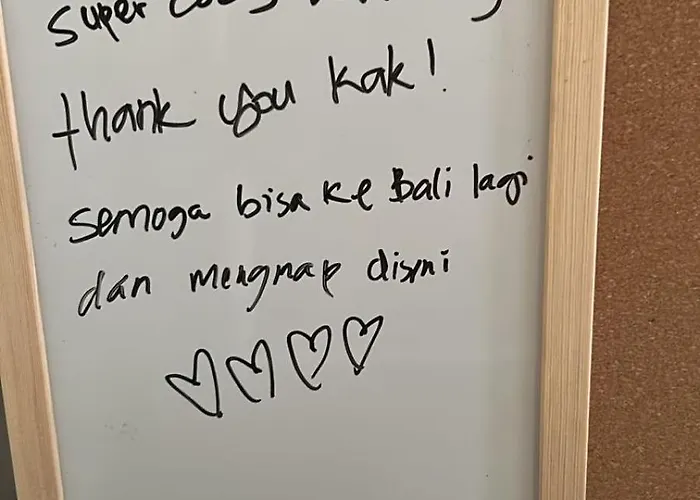 super
thank you kak!
semoga bisa ke Bali lagi
dan mengnap disini